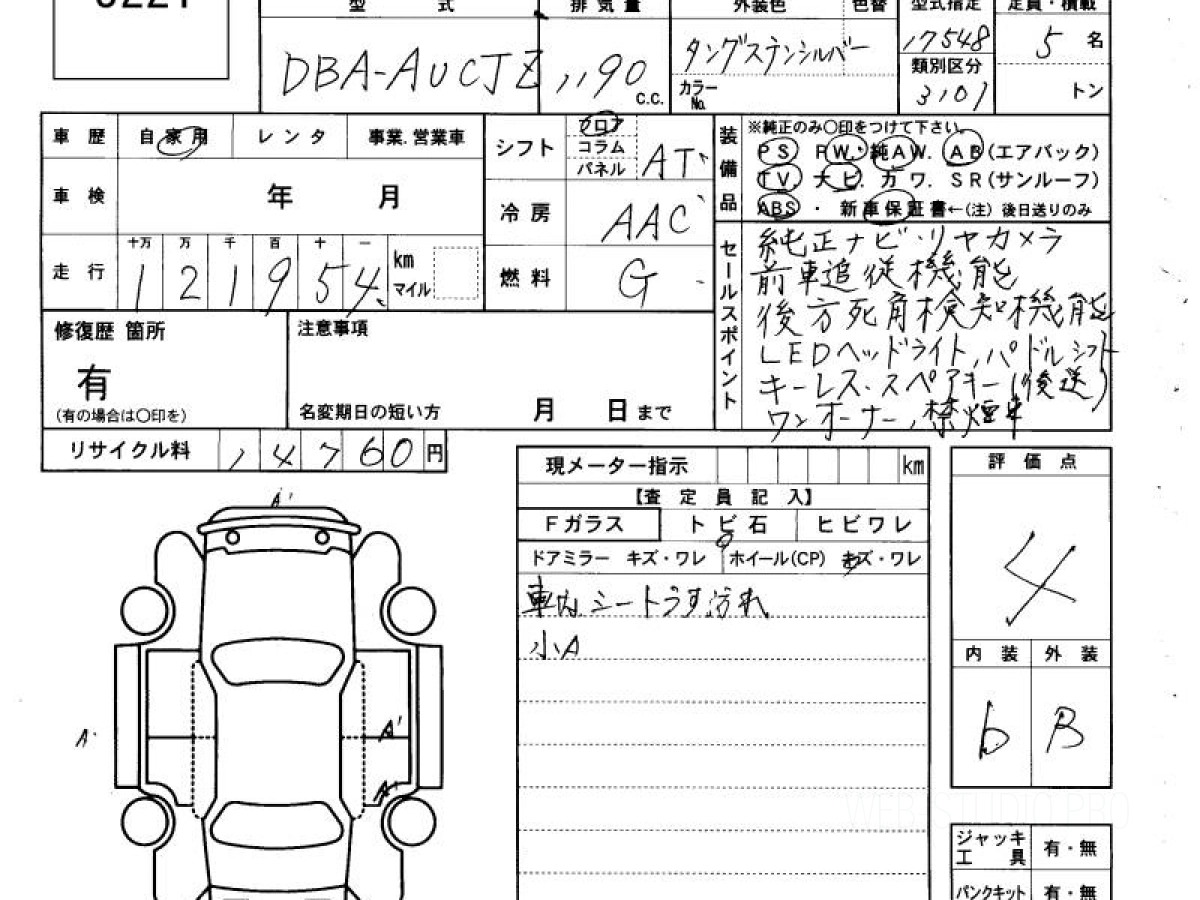 型 式 排 気 量 外装色 色替 型式指定 定員・積載
DBA-AUCJZ 1190 c.c. タングステンシルバー 17548 5 名
カラーNo. 類別区分 3101 トン
車 歴 自家用 レンタ 事業.営業車
車 検 年 月
十万 万 千 百 十 一
走 行 1 2 1 9 5 4 km マイル
シフト フロア コラム パネル AT
冷 房 AAC
燃 料 G
装備品 ※純正のみ〇印をつけて下さい。
PS PW. 純AW. AB(エアバック)
TV. ナビ. カワ. SR(サンルーフ)
ABS ・ 新車保証書←(注) 後日送りのみ
セールスポイント
純正ナビ・リヤカメラ
前車追従機能
後方死角検知機能
LEDヘッドライト,パドルシフト
キーレス・スペアキー(後送)
ワンオーナー,禁煙車
修復歴 箇所
有
(有の場合は〇印を)
注意事項
名変期日の短い方 月 日まで
リサイクル料 14760 円
現メーター指示 km
【査 定 員 記 入】
Fガラス トビ石 ヒビワレ
ドアミラー キズ・ワレ ホイール(CP) キズ・ワレ
車内シートうす汚れ
小A
評 価 点
4
内 装 外 装
b B
A'
A'
A'
A'
ジャッキ 工具 有・無
パンクキット 有・無
WEB STUDIO PRO